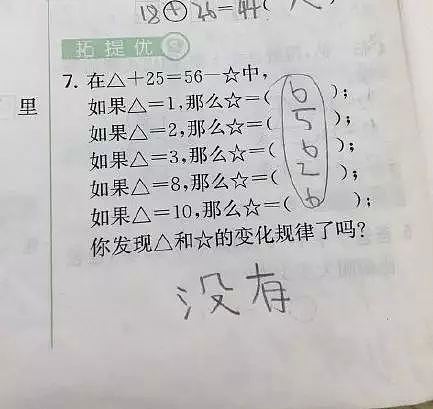 18+26=44(
拓提优
7. 在△+25=56-☆中,
里
如果△=1,那么☆=( 6 );
如果△=2,那么☆=( 5 );
如果△=3,那么☆=( 6 );
如果△=8,那么☆=( 2 );
如果△=10,那么☆=( 6 );
你发现△和☆的变化规律了吗?
没有